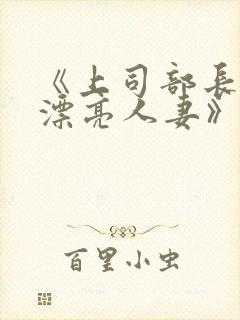 《上司部长
漂亮人妻》
百里小虫